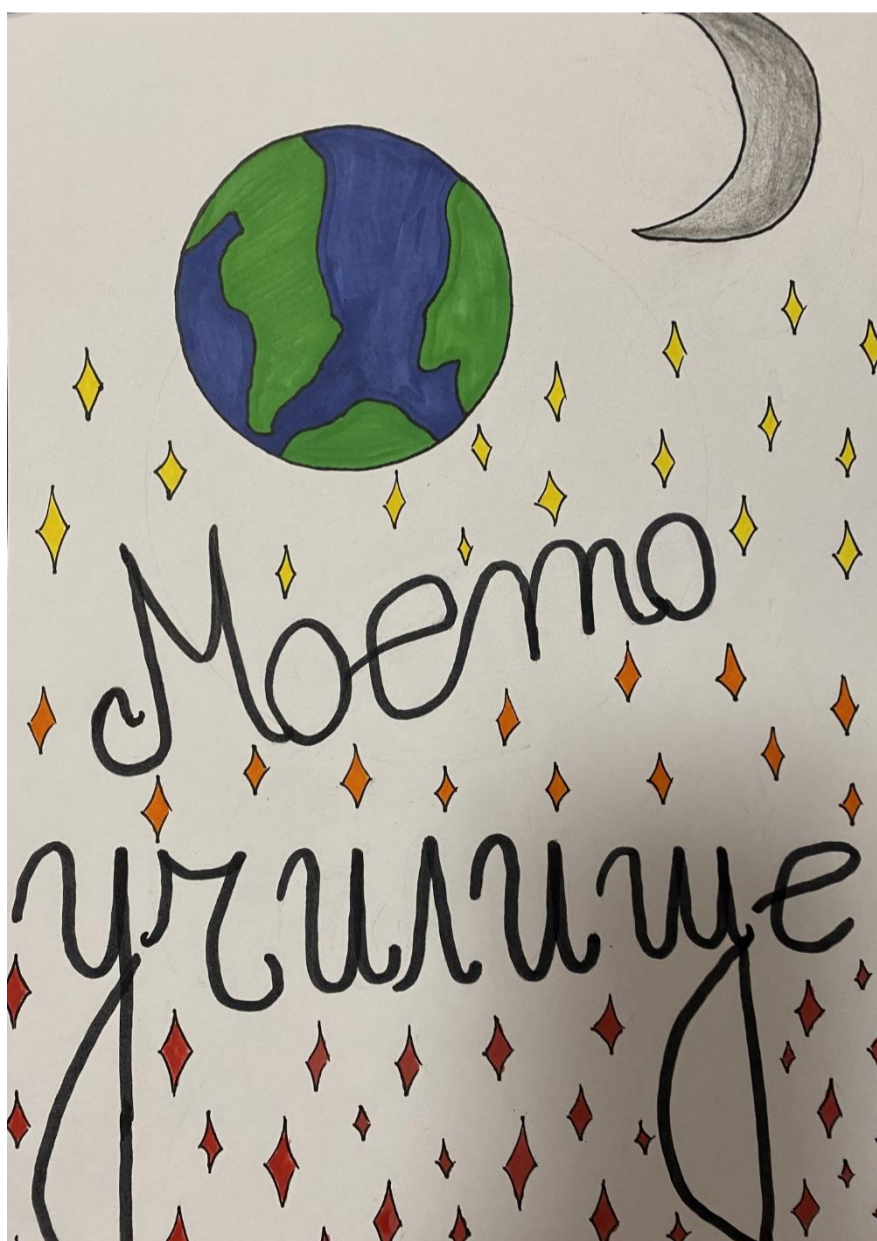 Моето
училище